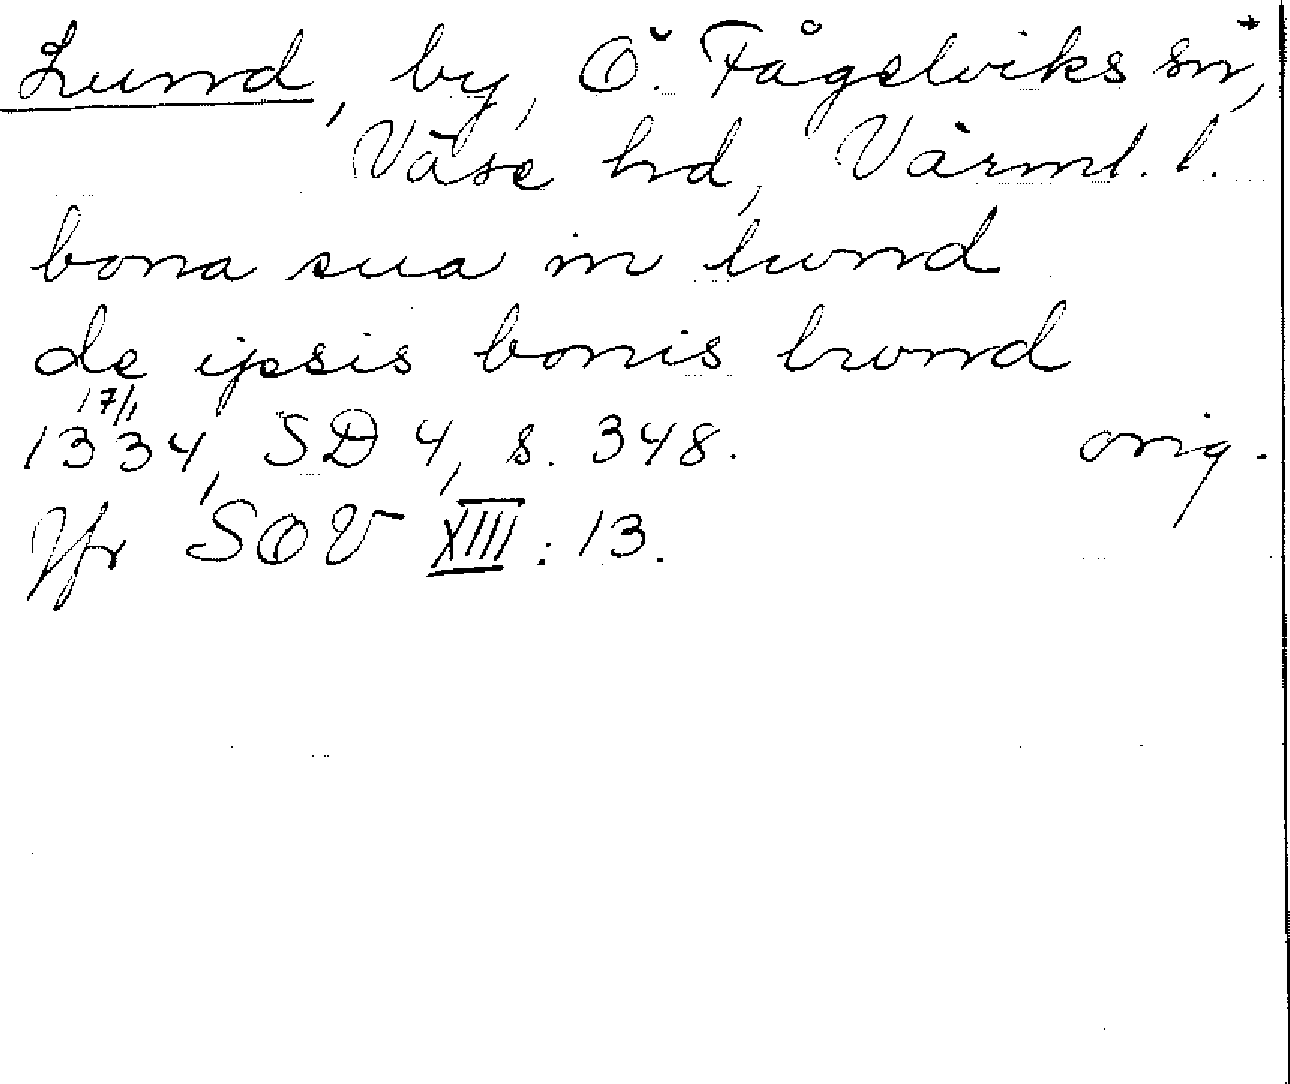 Lund, by, Ö. Fågelviks sn,
Väse hd, Värml. l.
bona sua in lwnd
de ipsis bonis lwnd
17/1
1334, SD 4, s. 348. orig.
Jfr SOV XIII: 13.